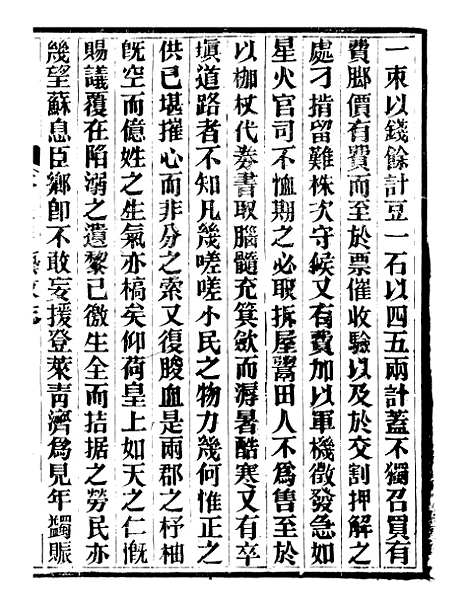 一束以錢餘計豆一石以四五兩計蓋不獨召買有
費脚價有費而至於票催收驗以及於交割押解之
處刁掯留難株次守候又有費加以軍機徵發急如
星火官司不恤期之必取拆屋鬻田人不為售至於
以枷杖代劵書取腦髓充箕斂而溽暑酷寒又有卒
塡道路者不知凡幾嗟嗟小民之物力幾何惟正之
供已堪摧心而非分之索又復朘血是兩郡之杼柚
旣空而億姓之生氣亦槁矣仰荷皇上如天之仁慨
賜議覆在陷溺之遺黎已徼生全而拮据之勞民亦
幾望蘇息臣鄉卽不敢妄援登萊青濟為見年蠲賑